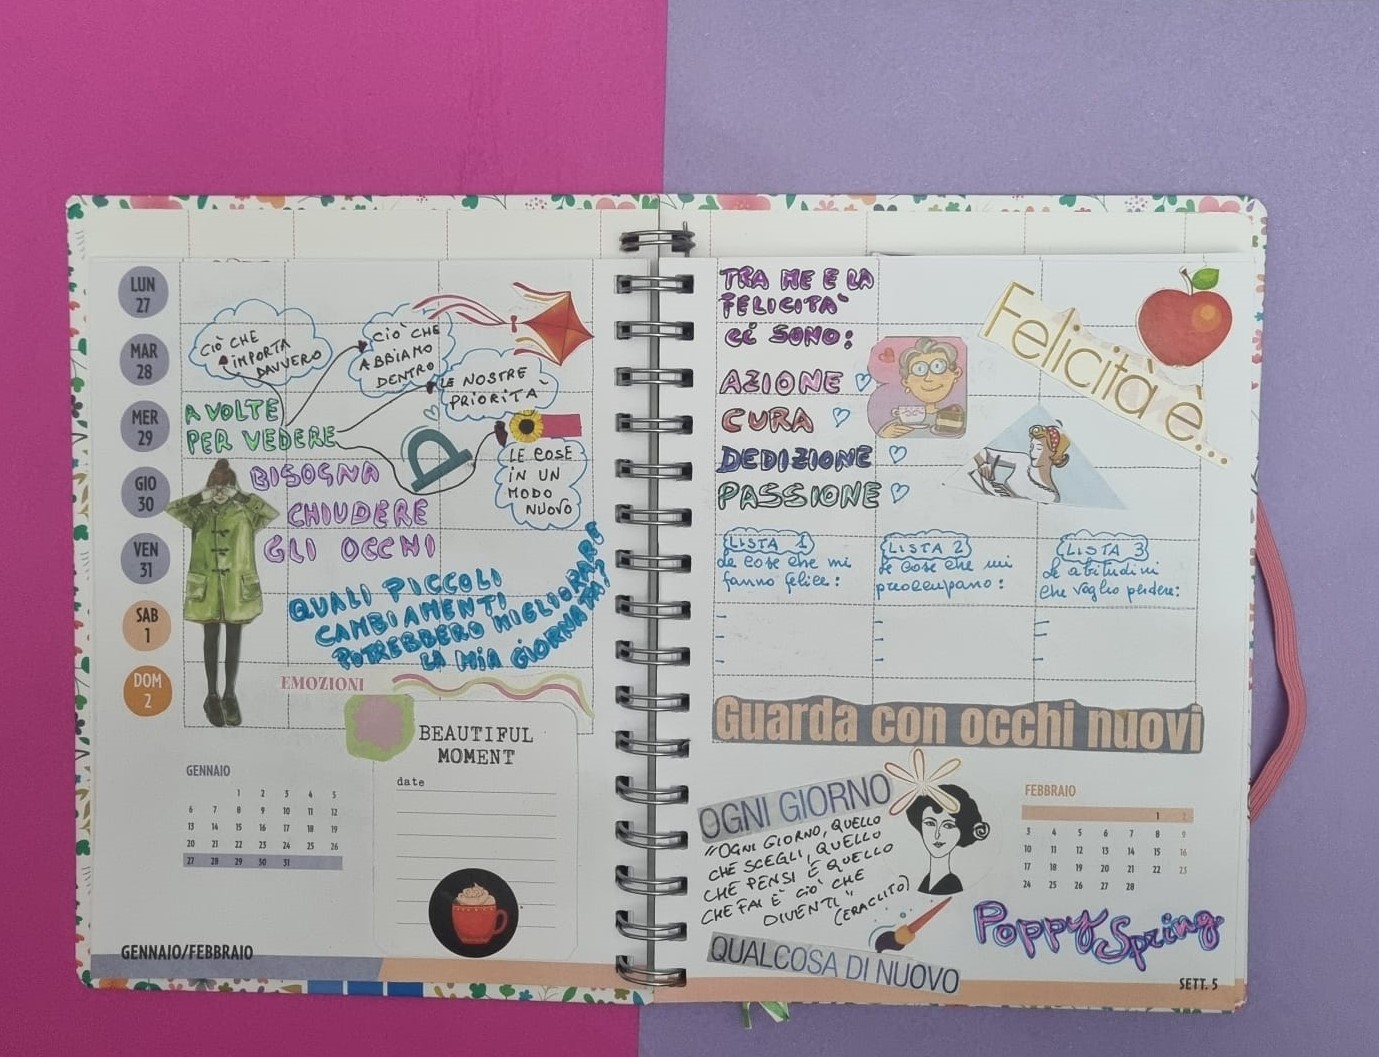 LUN
27
MAR
28
MER
29
GIO
30
VEN
31
SAB
1
DOM
2
CIÒ CHE
IMPORTA
DAVVERO
CIÒ CHE
ABBIAMO
DENTRO
LE NOSTRE
PRIORITA'
LE COSE
IN UN
MODO
NUOVO
A VOLTE
PER VEDERE
BISOGNA
CHIUDERE
GLI OCCHI
QUALI PICCOLI
CAMBIAMENTI
POTREBBERO MIGLIORARE
LA MIA GIORNATA?
EMOZIONI
BEAUTIFUL
MOMENT
date
GENNAIO
1 2 3 4 5
6 7 8 9 10 11 12
13 14 15 16 17 18 19
20 21 22 23 24 25 26
27 28 29 30 31
GENNAIO/FEBBRAIO
TRA ME E LA
FELICITA'
CI SONO:
AZIONE
CURA
DEDIZIONE
PASSIONE
Felicità è...
LISTA 1
Le cose che mi
fanno felice:
LISTA 2
Le cose che mi
preoccupano:
LISTA 3
Le abitudini
che voglio perdere:
Guarda con occhi nuovi
OGNI GIORNO
"OGNI GIORNO, QUELLO
CHE SCEGLI, QUELLO
CHE PENSI E QUELLO
CHE FAI È CIÒ CHE
DIVENTI"
(ERACLITO)
QUALCOSA DI NUOVO
FEBBRAIO
1 2
3 4 5 6 7 8 9
10 11 12 13 14 15 16
17 18 19 20 21 22 23
24 25 26 27 28
Poppy Spring
SETT. 5